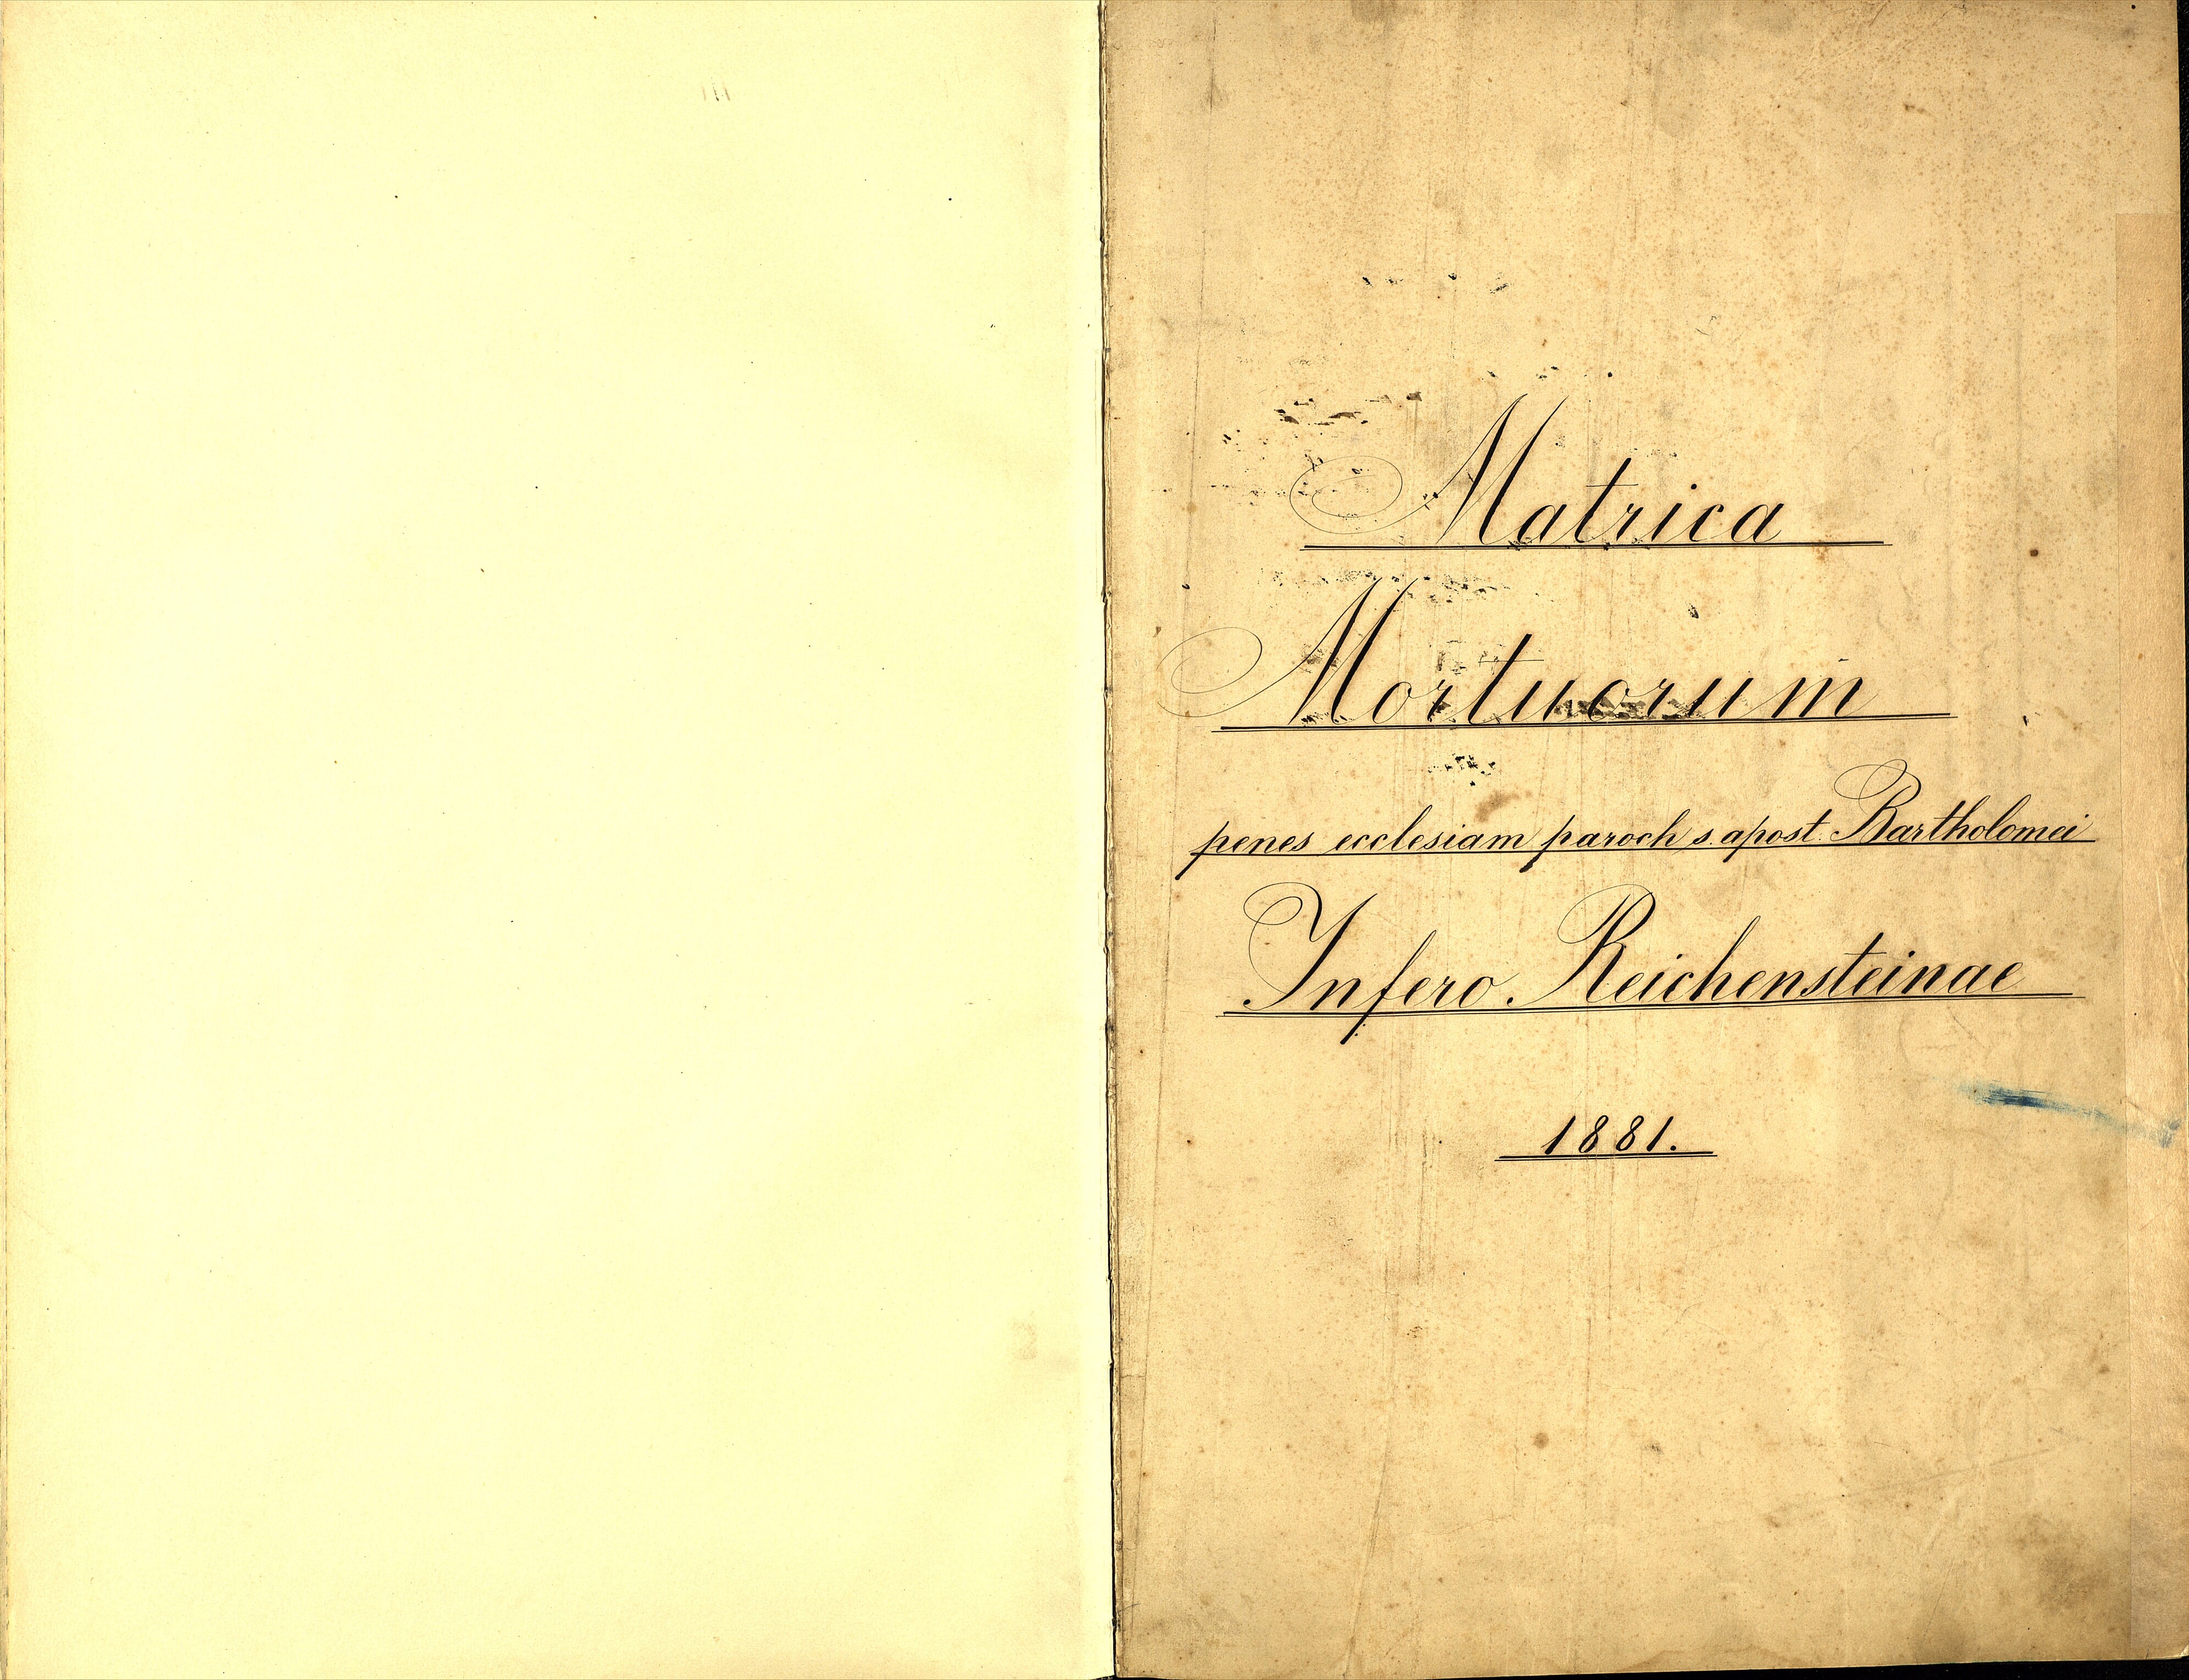 Matrica
Mortuorum
penes ecclesiam paroch s. apost. Bartholomei
Infero. Reichensteinae
1881.